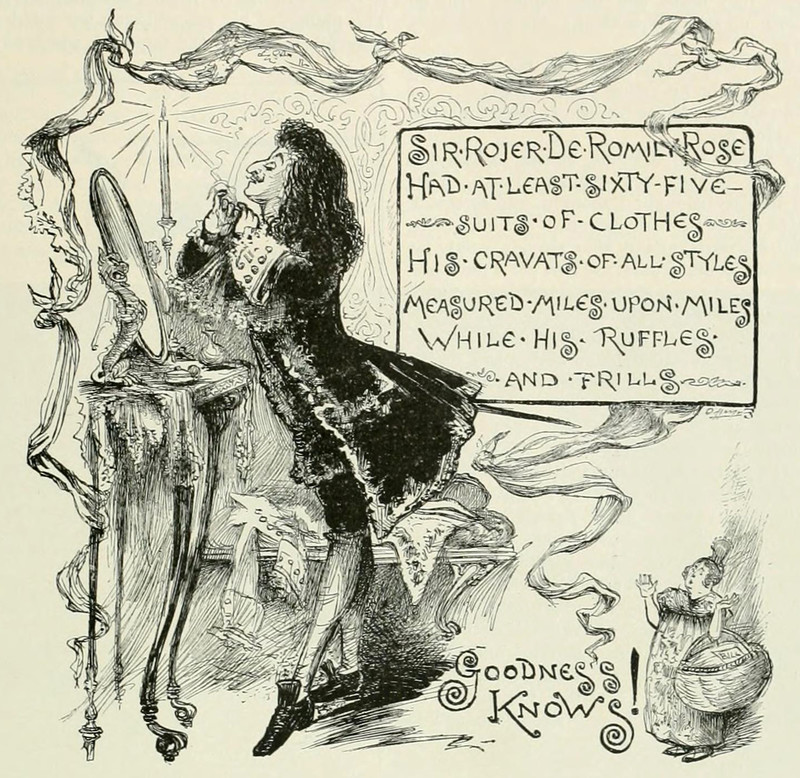 SIR·ROJER·DE·ROMILY·ROSE
HAD·AT·LEAST·SIXTY-FIVE-
SUITS·OF·CLOTHES
HIS·CRAVATS·OF·ALL·STYLES
MEASURED·MILES·UPON·MILES
WHILE·HIS·RUFFLES·
·AND·FRILLS
GOODNESS
KNOWS!